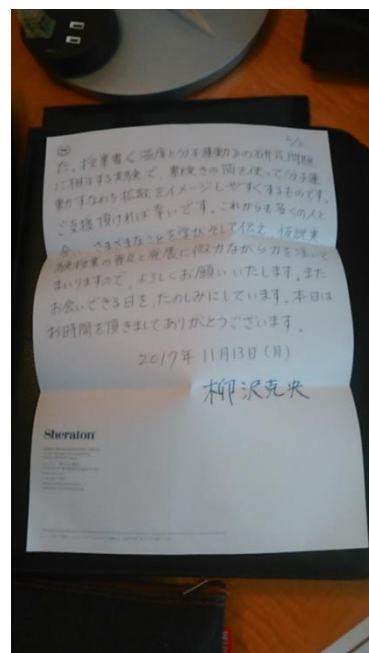 2/2
た。授業書《温度と分子運動》の研究問題
に相当する実験で、素焼きの筒を使って「分子運
動すなわち拡散をイメージしやすくするものです。
ご支援頂ければ幸いです。これからも多くの人と
会い、さまざまなことを学びそして伝え、仮説実
験授業の普及と発展に微力ながら力を注いで
まいりますので、よろしくお願いいたします。また
お会いできる日を、たのしみにしています。本日は
お時間を頂きましてありがとうございます。
2017年11月13日(月)
柳沢克央
Sheraton